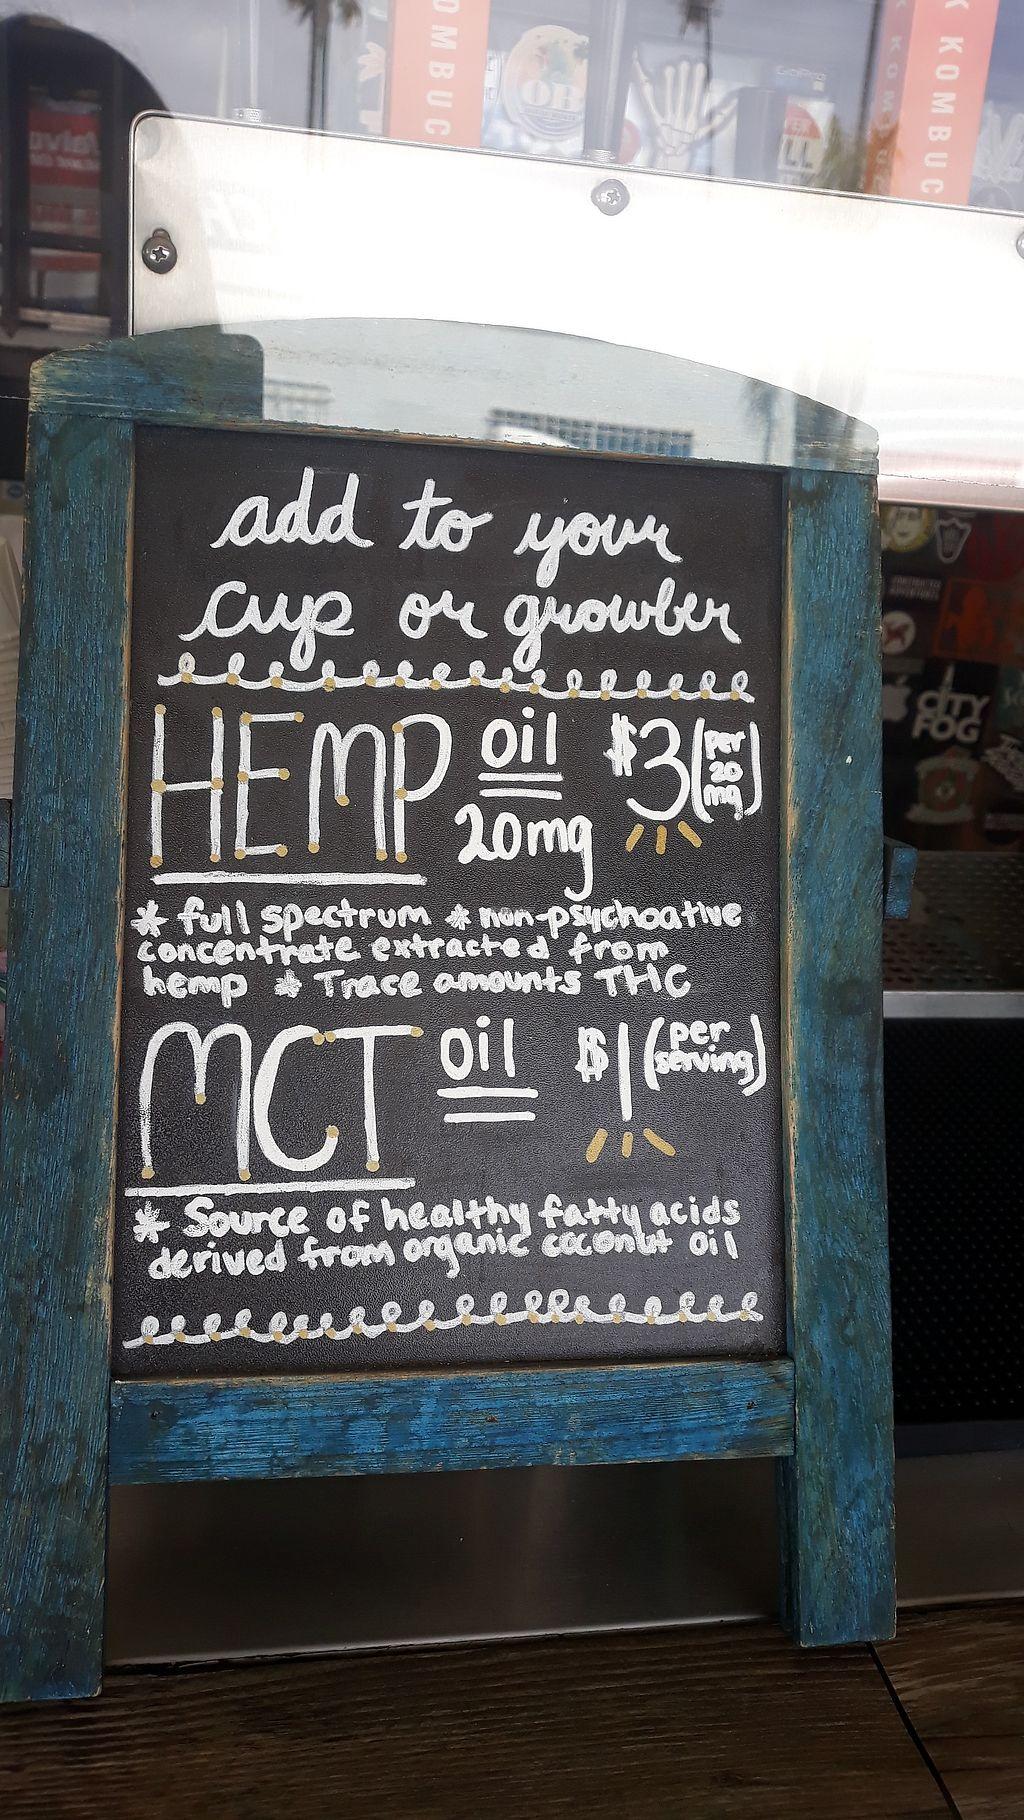 KOMBUC
KOMBUC
OB
CITY
FOG
add to your
cup or growler
HEMP oil $3 (per 20 mg)
20mg
* full spectrum * non-psychoative
concentrate extracted from
hemp * Trace amounts THC
MCT oil $1 (per serving)
* Source of healthy fatty acids
derived from organic coconut oil